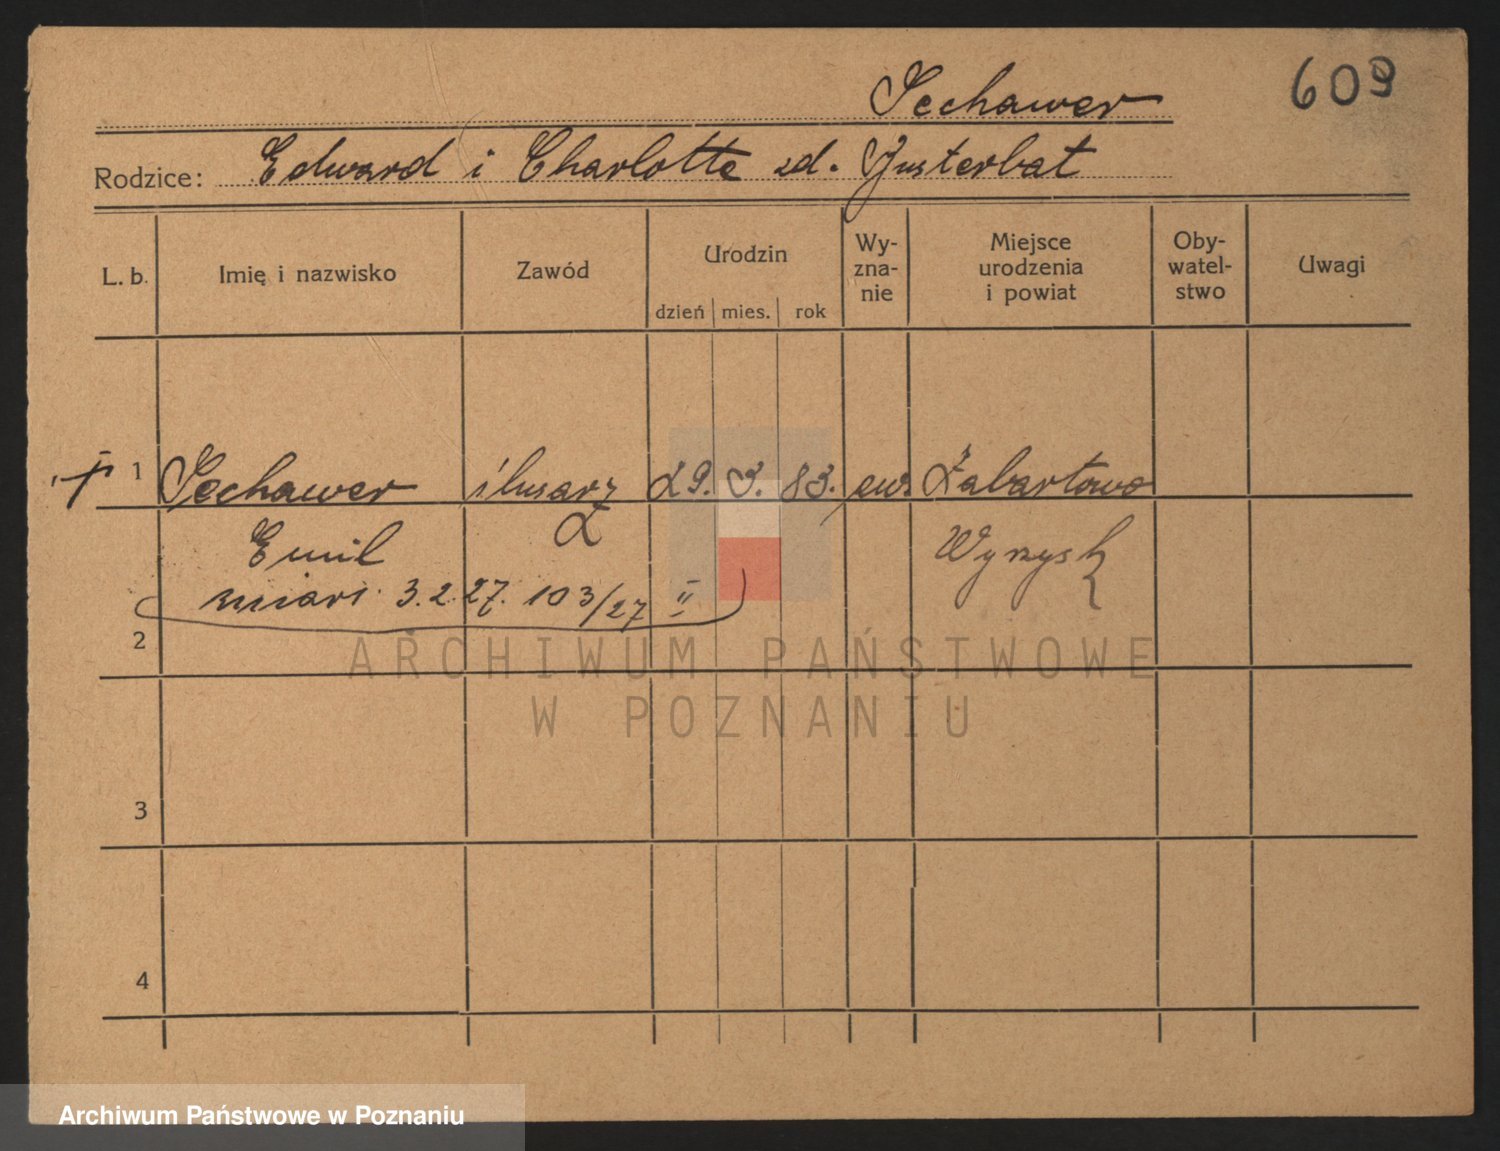 609
Sechawer
Rodzice: Edward i Charlotte zd. Justerbat
L. b. Imię i nazwisko Zawód Urodzin dzień mies. rok Wy-zna-nie Miejsce urodzenia i powiat Oby-watel-stwo Uwagi
1 Sechawer ślusarz 29. 3. 83. ew. Zabartowo
Emil Wyrzysk
zmarł 3.2.27. 103/27 II
2
3
4
ARCHIWUM PAŃSTWOWE
W POZNANIU
Archiwum Państwowe w Poznaniu